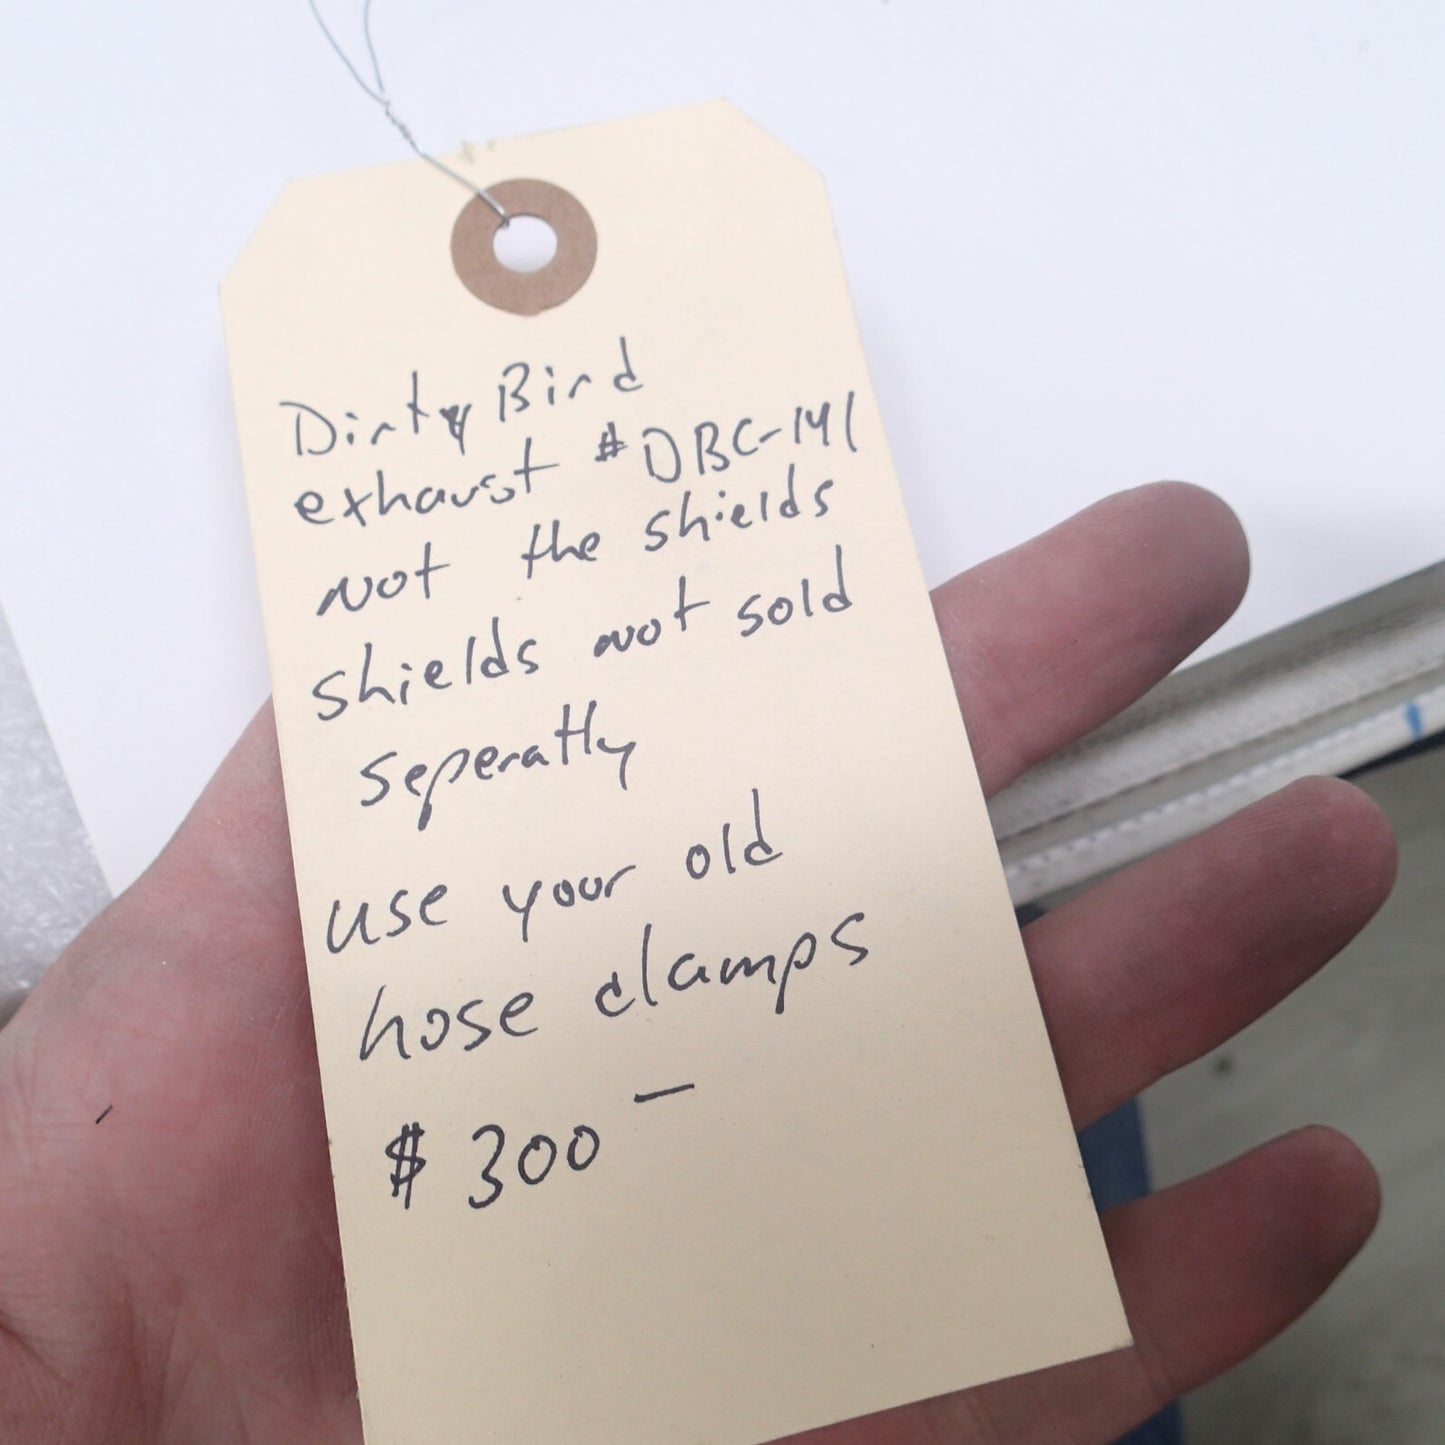 Dirty Bird
exhaust #DBC-141
not the shields
shields not sold
seperatly
use your old
hose clamps
$300 —